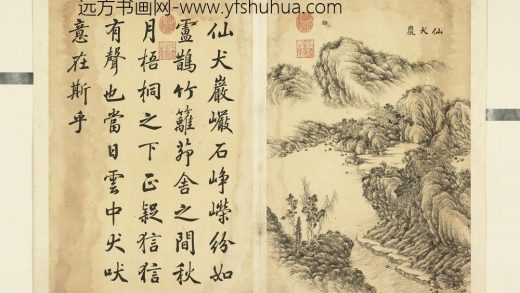 远方书画网-www.yfshuhua.com
仙犬巖
仙犬巖巉石崢嶸紛如
盧鵲竹籬茆舍之間秋
月梧桐之下正疑狺狺
有聲也當日雲中犬吠
意在斯乎